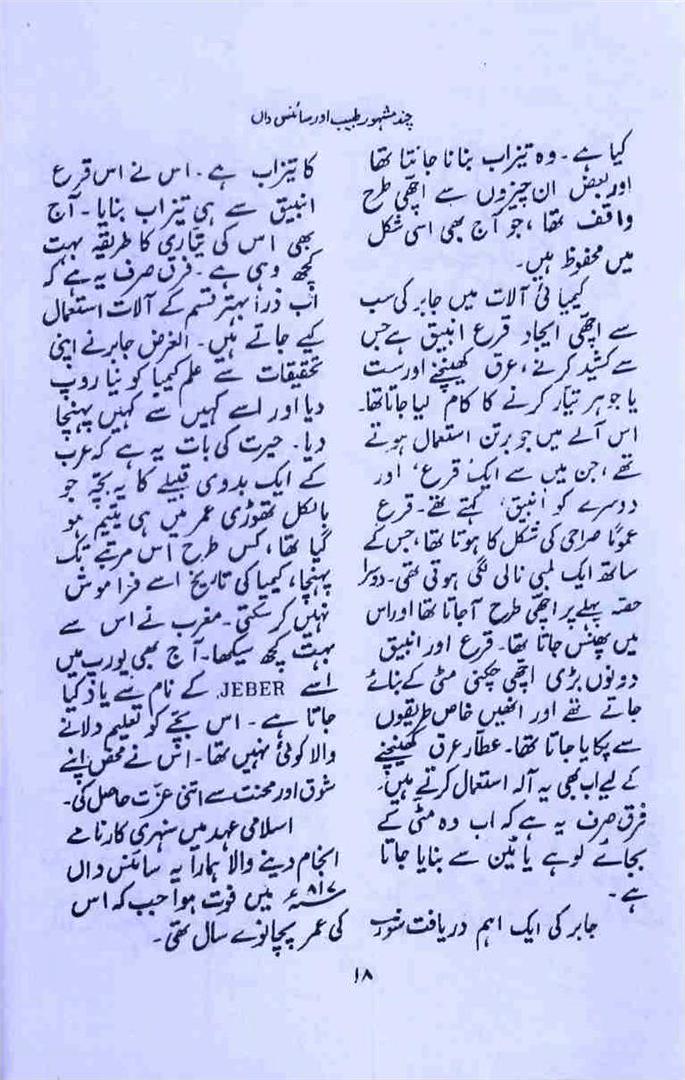 چند مشہور طبیب اور سائنس داں
کیا ہے۔ وہ تیزاب بنانا جانتا تھا
اور بعض ان چیزوں سے اچھی طرح
واقف تھا، جو آج بھی اسی شکل
میں محفوظ ہیں۔
کیمیائی آلات میں جابر کی سب
سے اچھی ایجاد قرع انبیق ہے جس
سے کشید کرنے، عرق کھینچنے اور ست
یا جوہر تیار کرنے کا کام لیا جاتا تھا۔
اس آلے میں جو برتن استعمال ہوتے
تھے، جن میں سے ایک ’قرع‘ اور
دوسرے کو ’انبیق‘ کہتے تھے۔ قرع
عموماً صراحی کی شکل کا ہوتا تھا، جس کے
ساتھ ایک لمبی نالی لگی ہوتی تھی۔ دوسرا
حصّہ پہلے پر اچھی طرح آجاتا تھا اور اس
میں پھنس جاتا تھا۔ قرع اور انبیق
دونوں بڑی اچھی چکنی مٹی کے بنائے
جاتے تھے اور انھیں خاص طریقوں
سے پکایا جاتا تھا۔ عطار عرق کھینچنے
کے لیے اب بھی یہ آلہ استعمال کرتے ہیں۔
فرق صرف یہ ہے کہ اب وہ مٹی کے
بجائے لوہے یا ٹین سے بنایا جاتا
ہے۔
جابر کی ایک اہم دریافت شورے
کا تیزاب ہے۔ اس نے اس قرع
انبیق سے ہی تیزاب بنایا۔ آج
بھی اس کی تیّاری کا طریقہ بہت
کچھ وہی ہے۔ فرق صرف یہ ہے کہ
اب ذرا بہتر قسم کے آلات استعمال
کیے جاتے ہیں۔ الغرض جابر نے اپنی
تحقیقات سے علم کیمیا کو نیا روپ
دیا اور اسے کہیں سے کہیں پہنچا
دیا۔ حیرت کی بات یہ ہے کہ عرب
کے ایک بدوی قبیلے کا یہ بچّہ جو
بالکل تھوڑی عمر میں ہی یتیم ہو
گیا تھا، کس طرح اس مرتبے تک
پہنچا، کیمیا کی تاریخ اسے فراموش
نہیں کرسکتی۔ مغرب نے اس سے
بہت کچھ سیکھا۔ آج بھی یورپ میں
اسے JEBER کے نام سے یاد کیا
جاتا ہے۔ اس بچّے کو تعلیم دلانے
والا کوئی نہیں تھا۔ اس نے محض اپنے
شوق اور محنت سے اتنی عزّت حاصل کی۔
اسلامی عہد میں سنہری کارنامے
انجام دینے والا ہمارا یہ سائنس داں
۸۱۷ء میں فوت ہوا جب کہ اس
کی عمر پچانوے سال تھی۔
۱۸